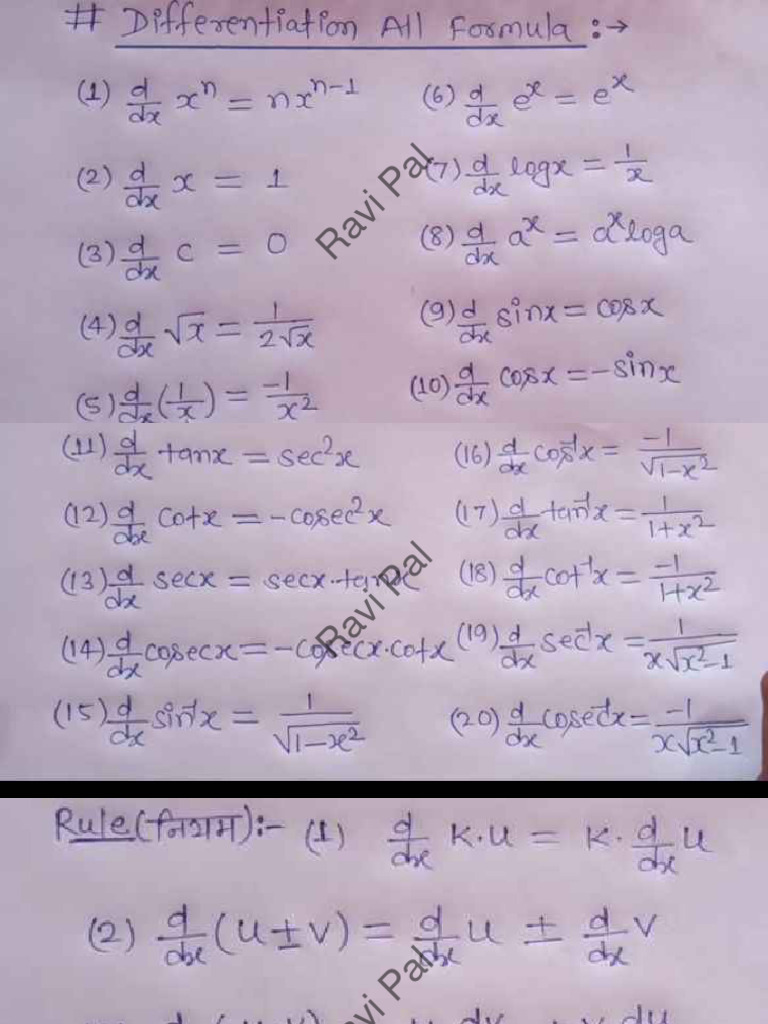 # Differentiation All Formula :→
(1) d/dx xⁿ = nxⁿ⁻¹
(2) d/dx x = 1
(3) d/dx c = 0
(4) d/dx √x = 1/2√x
(5) d/dx (1/x) = -1/x²
(6) d/dx eˣ = eˣ
(7) d/dx logx = 1/x
(8) d/dx aˣ = aˣloga
(9) d/dx sinx = cosx
(10) d/dx cosx = -sinx
Ravi Pal
(11) d/dx tanx = sec²x
(12) d/dx cotx = -cosec²x
(13) d/dx secx = secx·tanx
(14) d/dx cosecx = -cosecx·cotx
(15) d/dx sin⁻¹x = 1/√1-x²
(16) d/dx cos⁻¹x = -1/√1-x²
(17) d/dx tan⁻¹x = 1/1+x²
(18) d/dx cot⁻¹x = -1/1+x²
(19) d/dx sec⁻¹x = 1/x√x²-1
(20) d/dx cosec⁻¹x = -1/x√x²-1
Ravi Pal
Rule(नियम):- (1) d/dx K·u = K·d/dx u
(2) d/dx (u±v) = d/dx u ± d/dx v
Ravi Pal